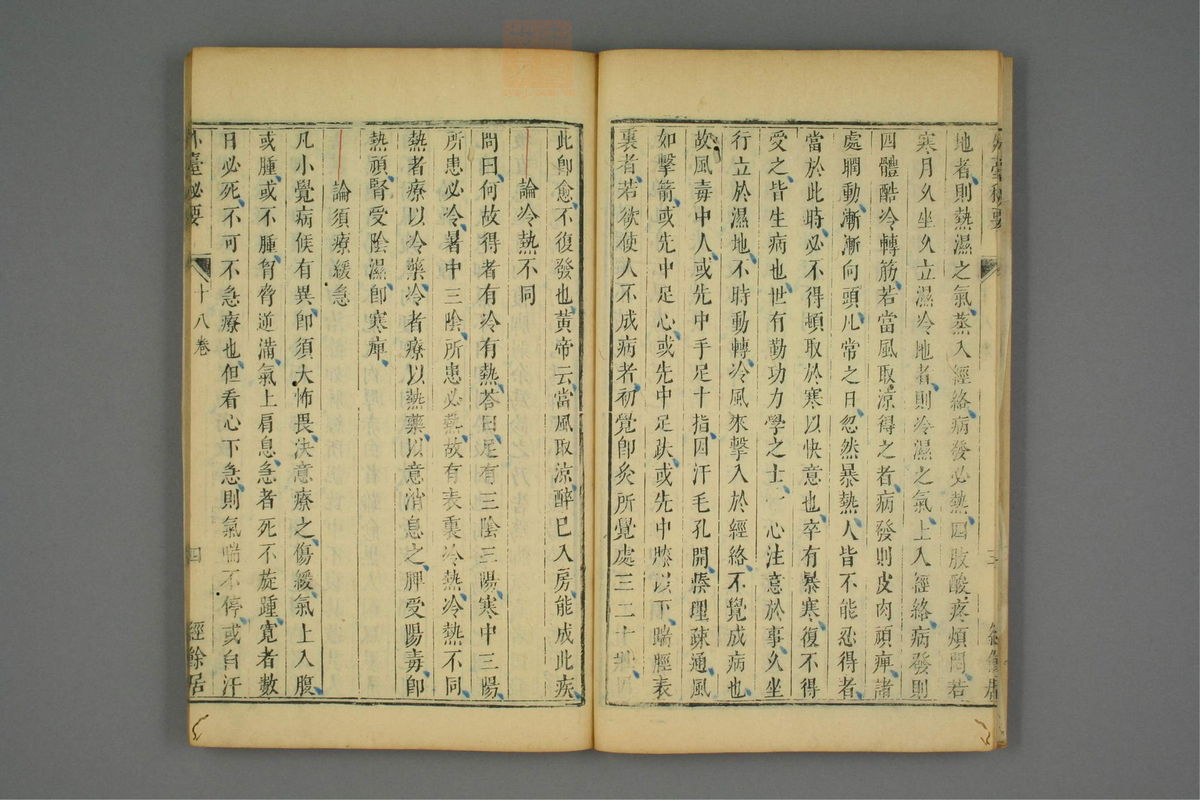 地者則熱濕之氣蒸入經絡病發必熱四肢酸疼煩悶若
寒月久坐久立濕冷地者則冷濕之氣上入經絡病發則
四體酷冷轉筋若當風取涼得之者病發則皮肉頑痺諸
處瞤動漸漸向頭凡常之日忽然暴熱人皆不能忍得者
當於此時必不得頓取於寒以快意也卒有暴寒復不得
受之皆生病也世有勤功力學之士一心注意於事久坐
行立於濕地不時動轉冷風來擊入於經絡不覺成病也
故風毒中人或先中手足十指因汗毛孔開腠理疎通風
如擊箭或先中足心或先中足趺或先中膝以下腨脛表
裏者若欲使人不成病者初覺卽灸所覺處三二十壯
此卽愈不復發也黃帝云當風取涼醉已入房能成此疾
論冷熱不同
問曰何故得者有冷有熱荅曰足有三陰三陽寒中三陽
所患必冷暑中三陰所患必熱故有表裏冷熱冷熱不同
熱者療以冷藥冷者療以熱藥以意消息之脾受陽毒卽
熱頑腎受陰濕卽寒痺
論須療緩急
凡小覺病候有異卽須大怖畏決意療之傷緩氣上入腹
或腫或不腫胷脅逆滿氣上肩息急者死不旋踵寬者數
日必死不可不急療也但看心下急則氣喘不停或白汗
外臺秘要 十八卷 四 經餘居